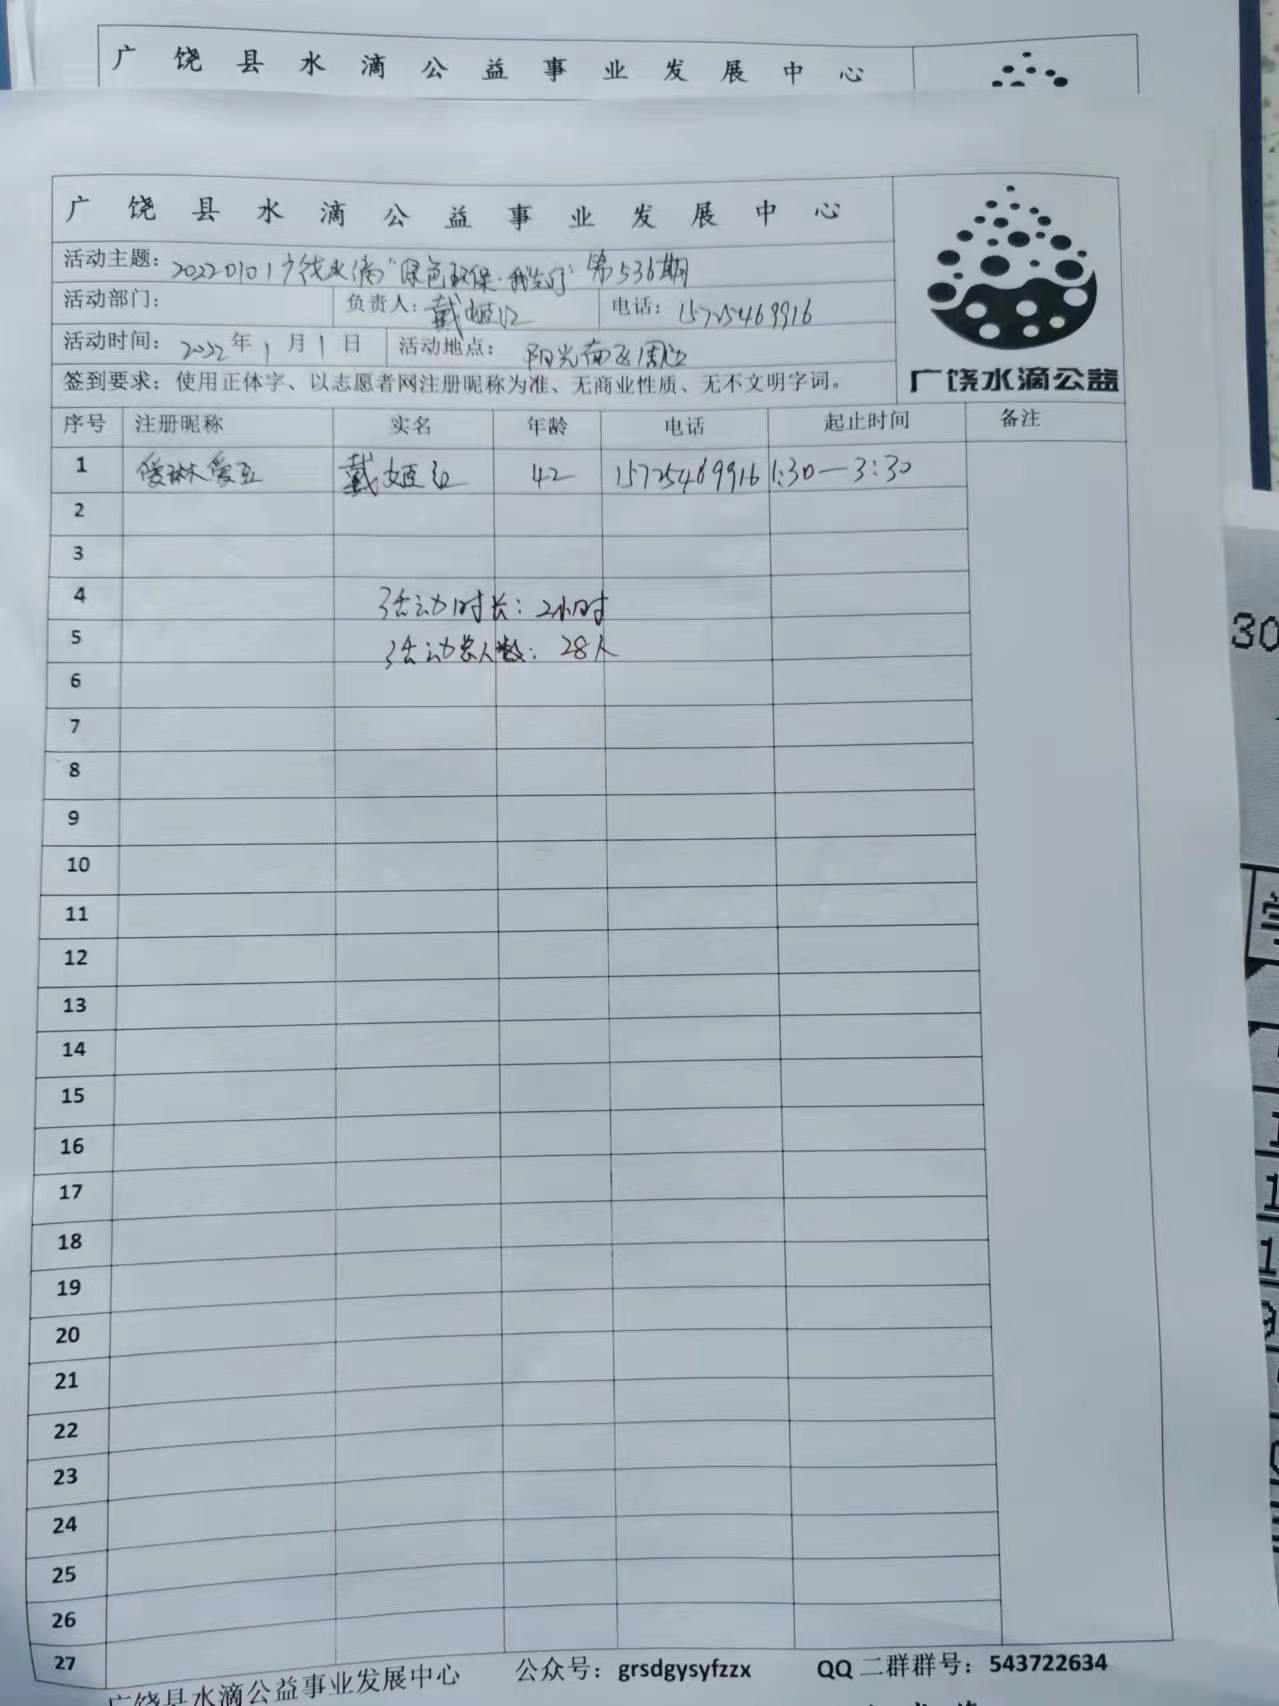 广饶县水滴公益事业发展中心
广饶县水滴公益事业发展中心
活动主题：20220101广饶水滴“绿色环保·我先行”第536期
活动部门： 负责人：戴姬红 电话：15725469916
活动时间：2022年1月1日 活动地点：阳光商区周边
签到要求：使用正体字、以志愿者网注册昵称为准、无商业性质、无不文明字词。
广饶水滴公益
序号 注册昵称 实名 年龄 电话 起止时间 备注
1 戴姬红 42 15725469916 1:30—3:30
2
3
4 活动时长：2小时
5 活动总人数：28人
6
7
8
9
10
11
12
13
14
15
16
17
18
19
20
21
22
23
24
25
26
27
广饶县水滴公益事业发展中心 公众号：grsdgysyfzzx QQ二群群号：543722634
30